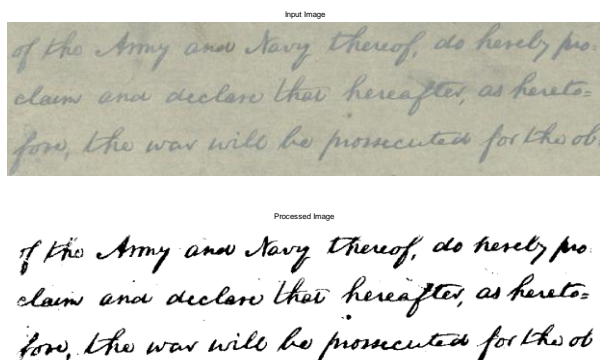 Input Image
of the Army and Navy thereof, do hereby pro-
claim and declare that hereafter, as hereto=
fore, the war will be prossecuted for the ob
Processed Image
of the Army and Navy thereof, do hereby pro
claim and declare that hereafter, as hereto=
fore, the war will be prossecuted for the ob